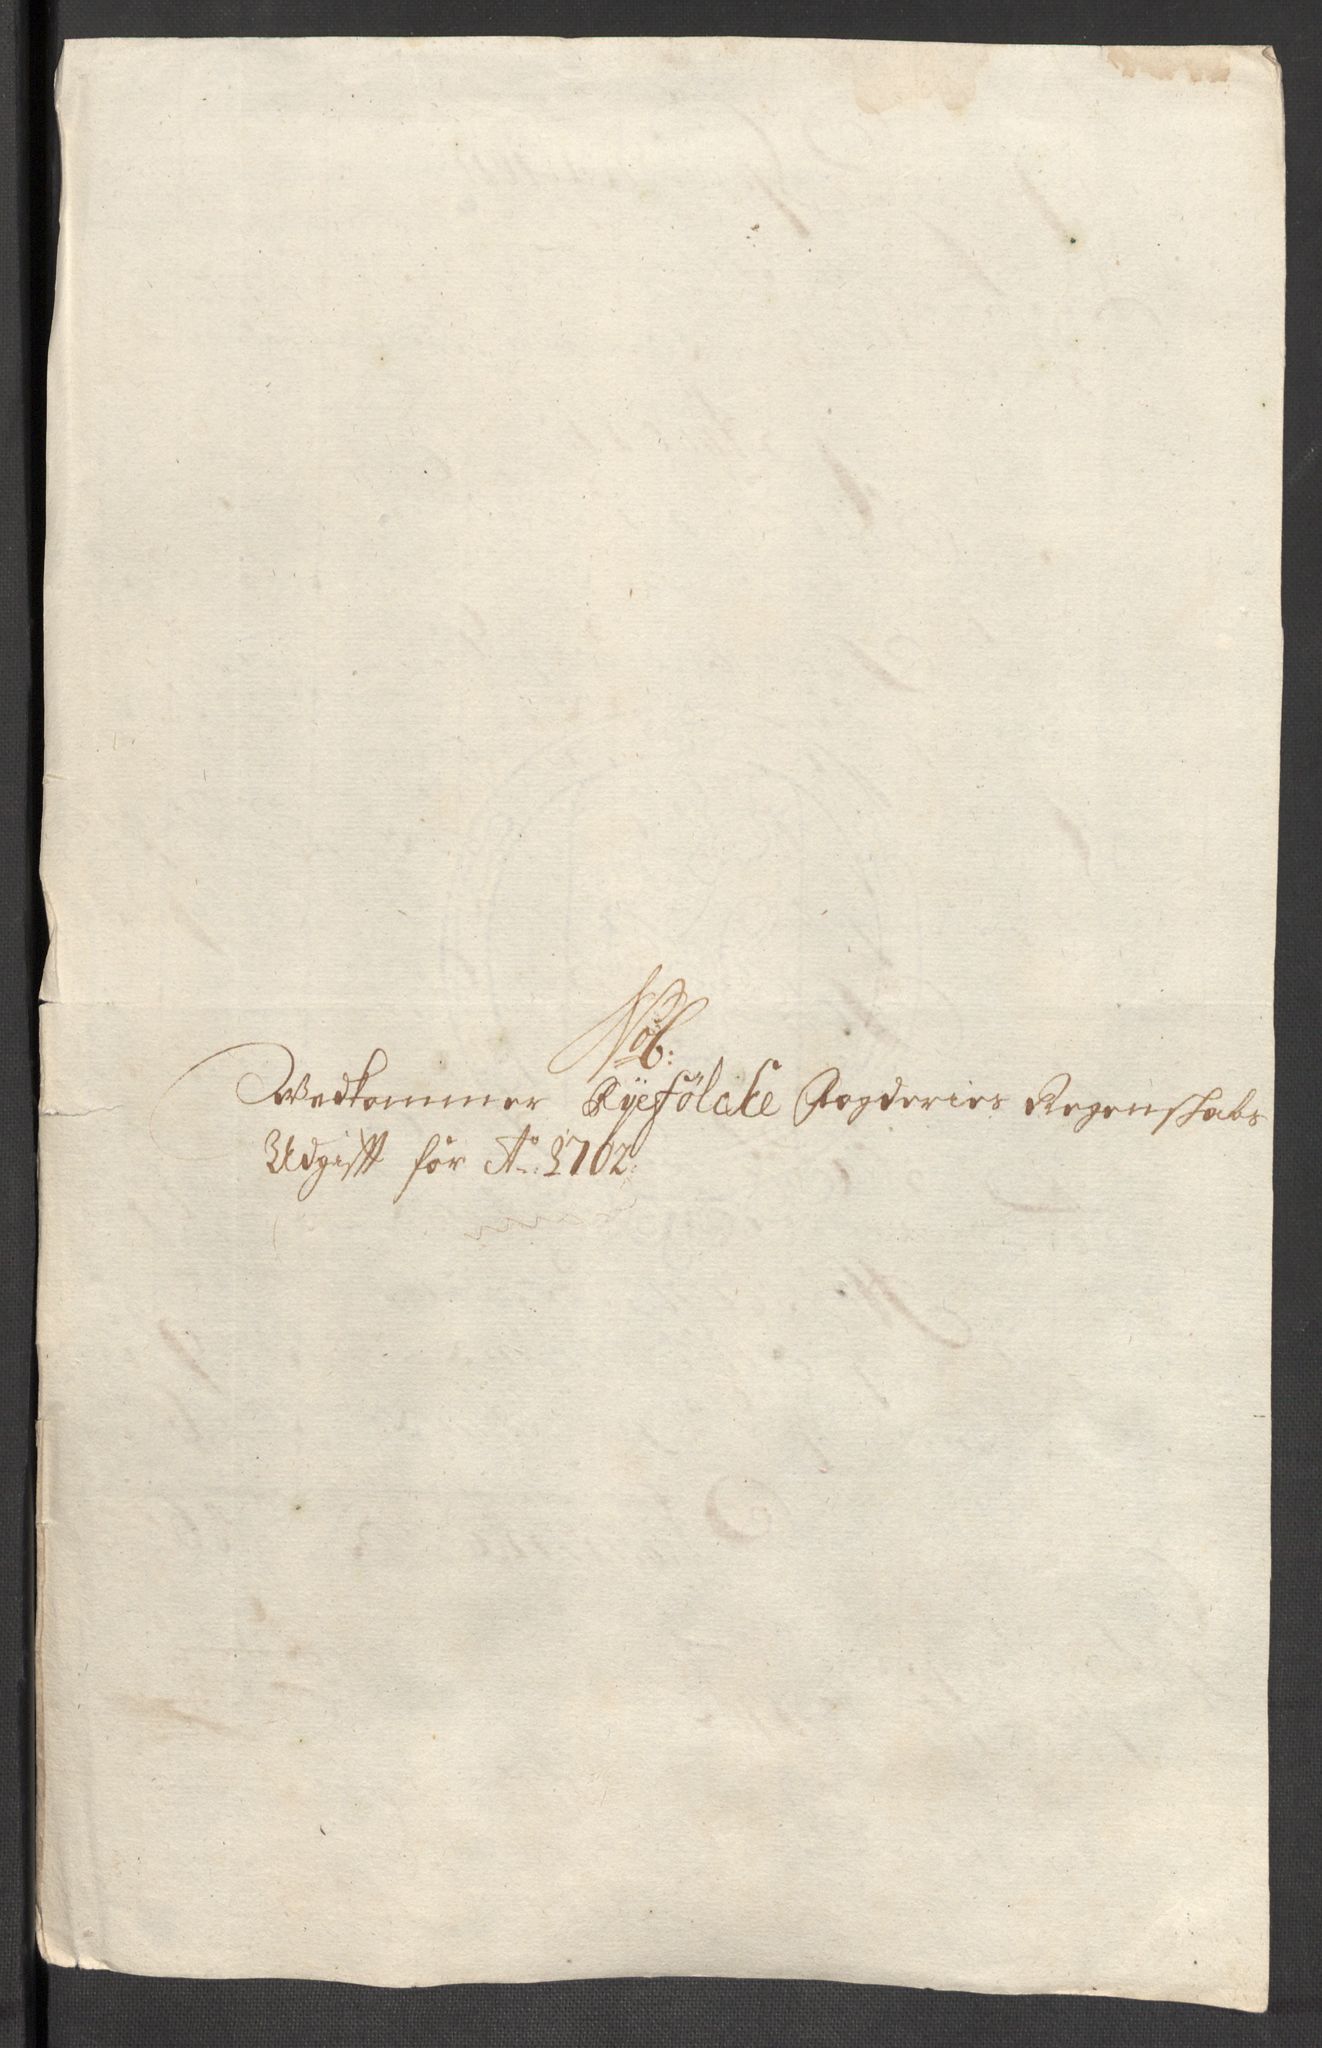 Vedkommer Ryefölcke Fogderies Regenskabs
Udgifft for Ao: 1702: